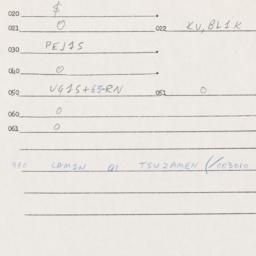 020 $
021 0 022 KU, BL1K
030 PEJ1S
040 0
050 UG1S+65-RN 051 0
060 0
061 0
980 LAM2N a1 TSUZAMEN (/003010